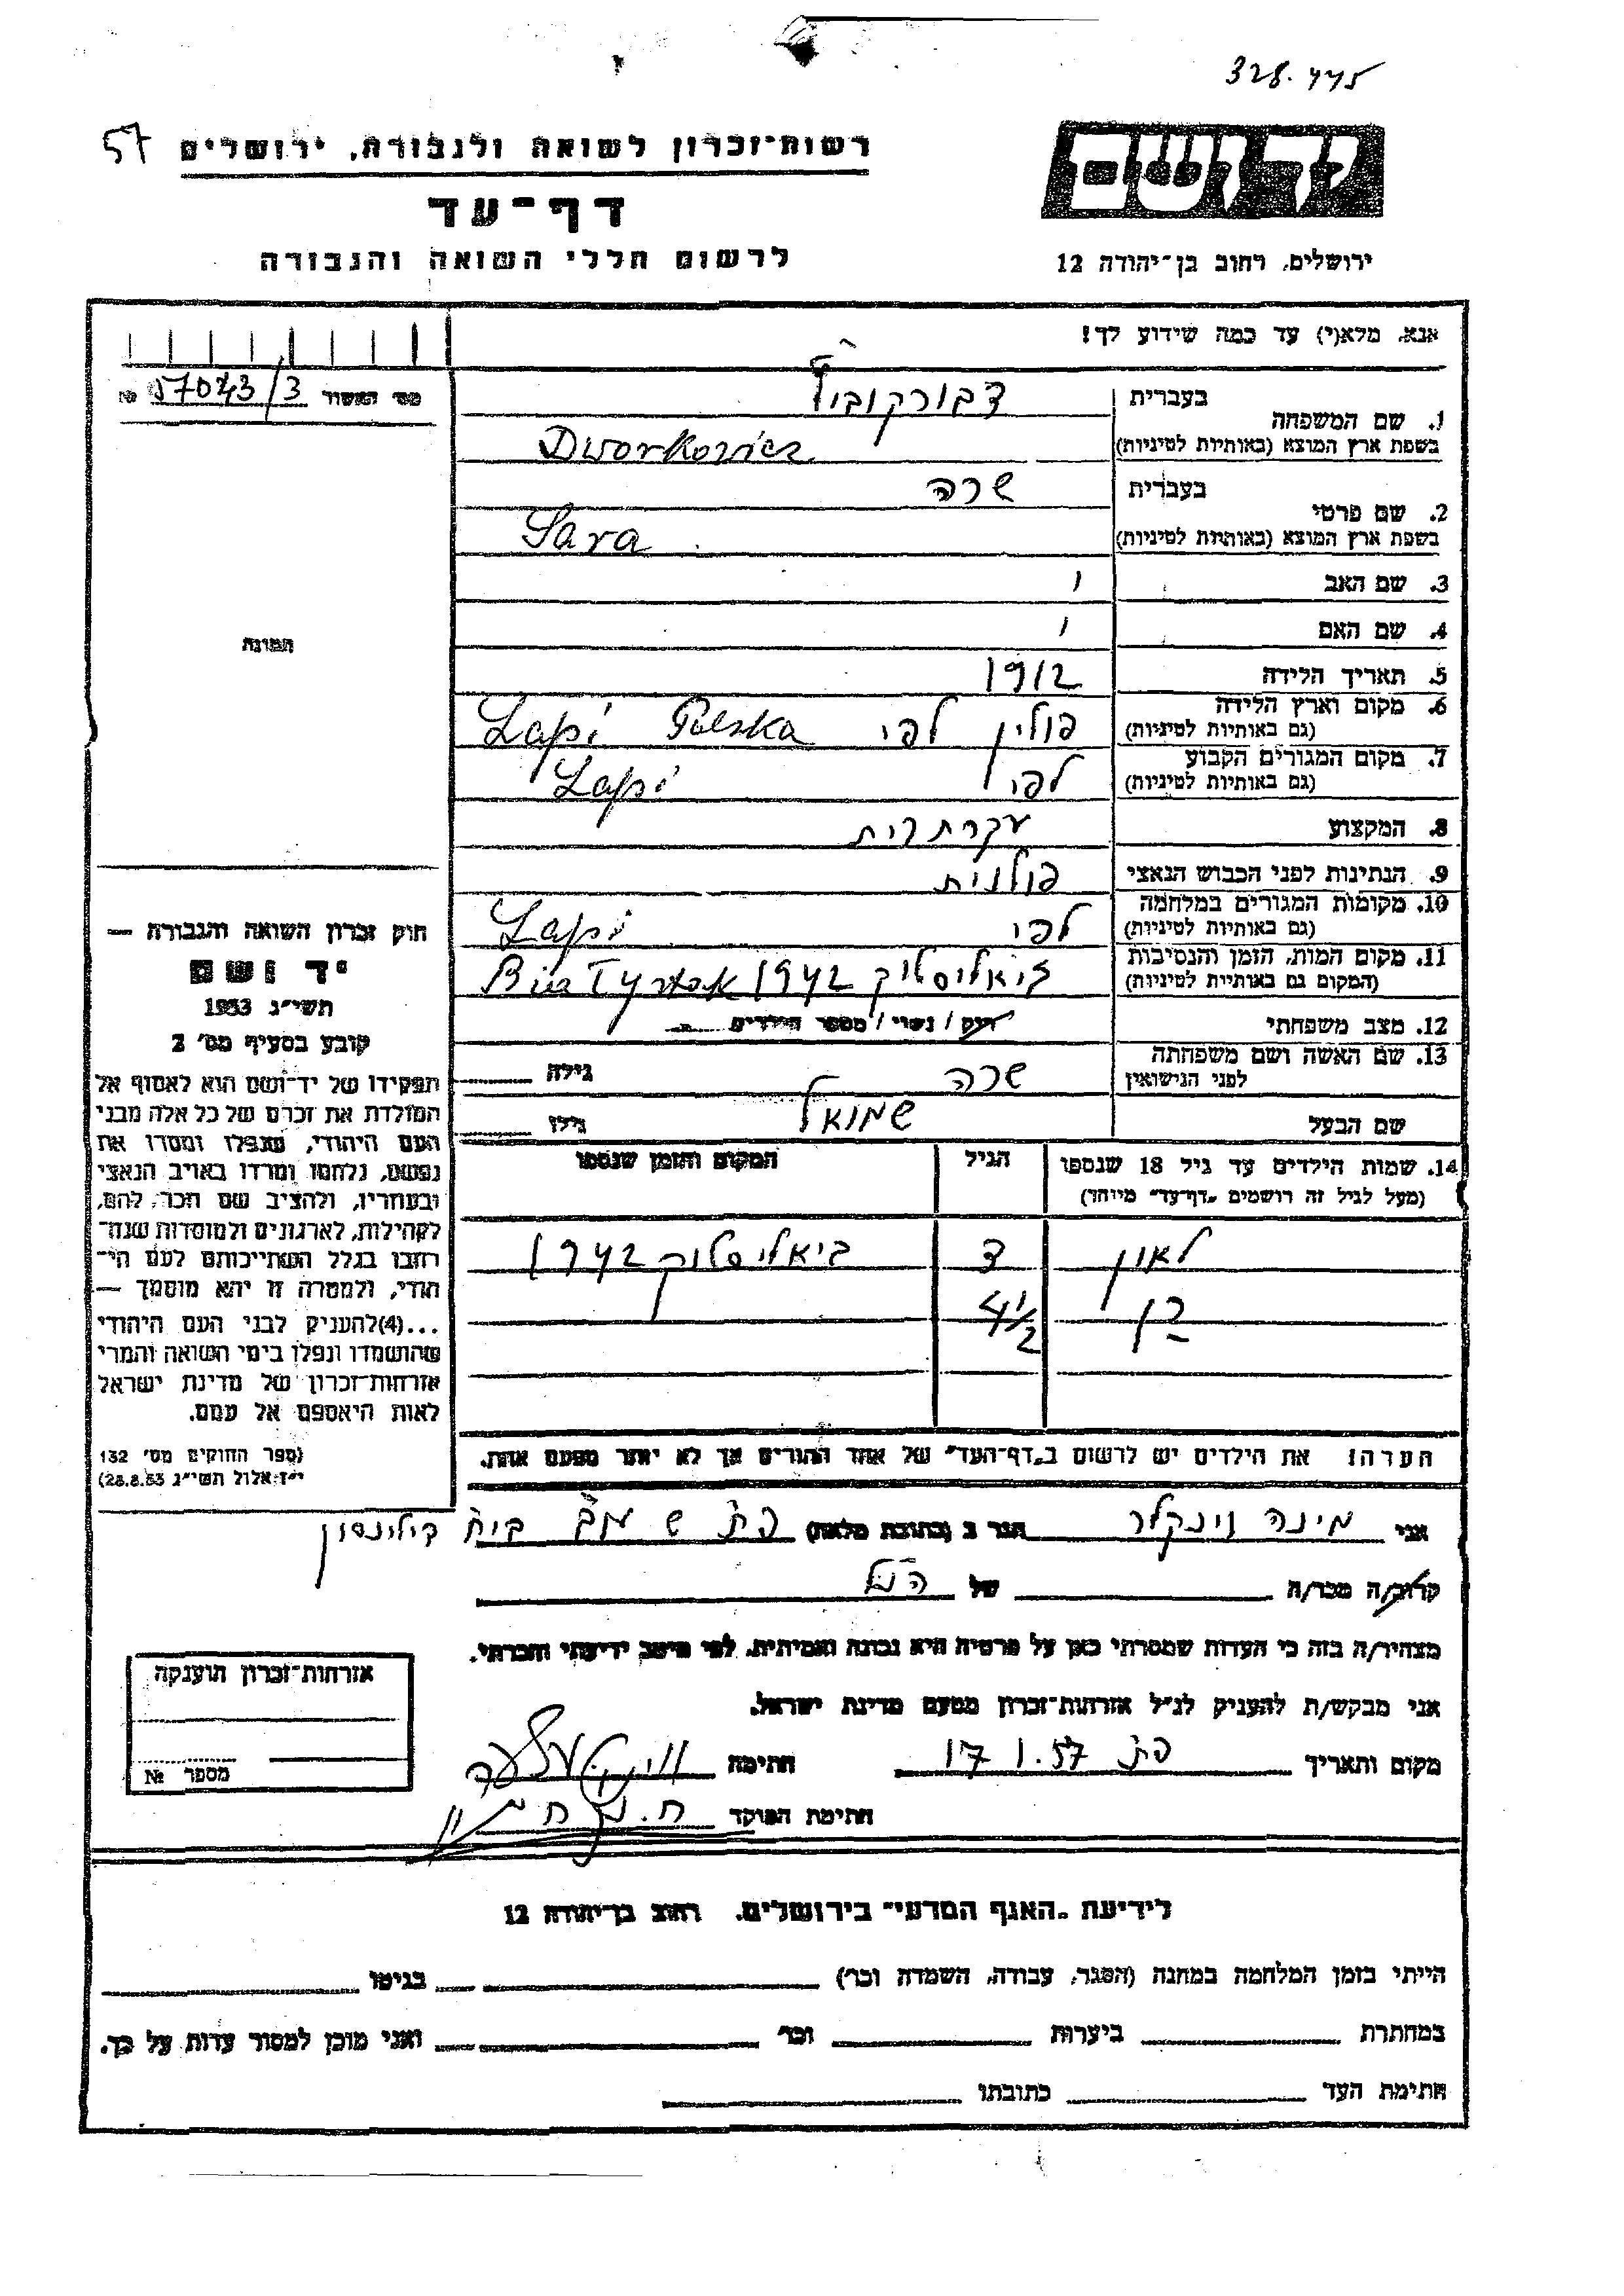 328.445
57
רשות־זכרון לשואה ולגבורה, ירושלים
ידושם
דף־עד
לרשום חללי השואה והגבורה
ירושלים, רחוב בן־יהודה 12
אנא, מלא(י) עד כמה שידוע לך!
מס׳ האשור 57043/3 №
1. שם המשפחה בעברית דבורקוביץ
בשפת ארץ המוצא (באותיות לטיניות) Dworkowicz
2. שם פרטי בעברית שרה
בשפת ארץ המוצא (באותיות לטיניות) Sara
3. שם האב
4. שם האם
תמונה
5. תאריך הלידה 1912
6. מקום וארץ הלידה (גם באותיות לטיניות) פולין לפי Polska Lapi
7. מקום המגורים הקבוע (גם באותיות לטיניות) לפי Lapi
8. המקצוע עקרת בית
9. הנתינות לפני הכבוש הנאצי פולנית
10. מקומות המגורים במלחמה (גם באותיות לטיניות) לפי Lapi
11. מקום המות, הזמן והנסיבות (המקום גם באותיות לטיניות) ביאליסטוק 1942
12. מצב משפחתי רוק/ נשוי/ מספר הילדים
13. שם האשה ושם משפחתה לפני הנישואין שרה גילה
שם הבעל שמואל גילו
14. שמות הילדים עד גיל 18 שנספו הגיל המקום והזמן שנספו
(מעל לגיל זה רושמים „דף־עד״ מיוחד)
לאון ביאליסטוק 1942
בן 4½
הערה: את הילדים יש לרשום ב„דף־העד״ של אחד ההורים אך לא יותר מפעם אחת.
חוק זכרון השואה והגבורה —
יד ושם
תשי״ג 1953
קובע בסעיף מס׳ 2
תפקידו של יד־ושם הוא לאסוף אל
המולדת את זכרם של כל אלה מבני
העם היהודי, שנפלו ומסרו את
נפשם, נלחמו ומרדו באויב הנאצי
ובעוזריו, ולהציב שם וזכר להם,
לקהילות, לארגונים ולמוסדות שנח־
רבו בגלל השתייכותם לעם הי־
הודי, ולמטרה זו יהא מוסמך —
...(4)להעניק לבני העם היהודי
שהושמדו ונפלו בימי השואה והמרי
אזרחות־זכרון של מדינת ישראל
לאות היאספם אל עמם.
(ספר החוקים מס׳ 132
י״ז אלול תשי״ג 28.8.53)
אני מינה וינקלר הגר ב (כתובת מלאה) פ״ת
קרוב/ה מכר/ה של הנ״ל
מצהיר/ה בזה כי העדות שמסרתי כאן על פרטיה היא נכונה ואמיתית, לפי מיטב ידיעתי והכרתי.
אני מבקש/ת להעניק לנ״ל אזרחות־זכרון מטעם מדינת ישראל.
מקום ותאריך פ״ת 17.1.57 חתימה
חתימת הפוקד
אזרחות־זכרון הוענקה
מספר №
לידיעת „האגף המדעי״ בירושלים. רחוב בן־יהודה 12
הייתי בזמן המלחמה במחנה (הסגר, עבודה, השמדה וכו׳) בגיטו
במחתרת ביערות וכו׳ ואני מוכן למסור עדות על כך.
חתימת העד כתובתו